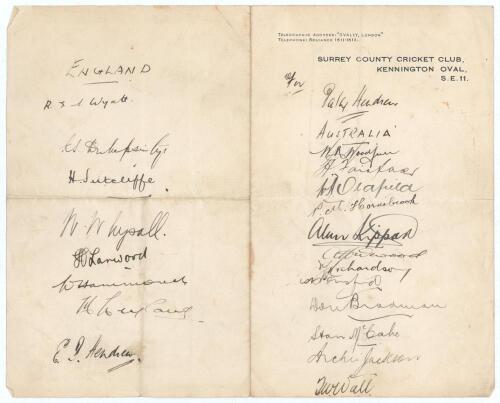 ENGLAND
R.E.S. Wyatt.
K.S. Duleepsinhji
H. Sutcliffe.
W.W. Whysall.
H Larwood
W Hammond
M. Leyland
E. H. Hendren.
TELEGRAPHIC ADDRESS: "OVALLY, LONDON"
TELEPHONE: RELIANCE 1811-1812.
SURREY COUNTY CRICKET CLUB,
KENNINGTON OVAL,
S.E.11.
For
Patsy Hendren
AUSTRALIA
W.M. Woodfull
A Fairfax
W A Oldfield
P. M. Hornibrook
Alan Kippax
V Richardson
W H Ponsford
Don Bradman
Stan McCabe
Archie Jackson
T W Wall.